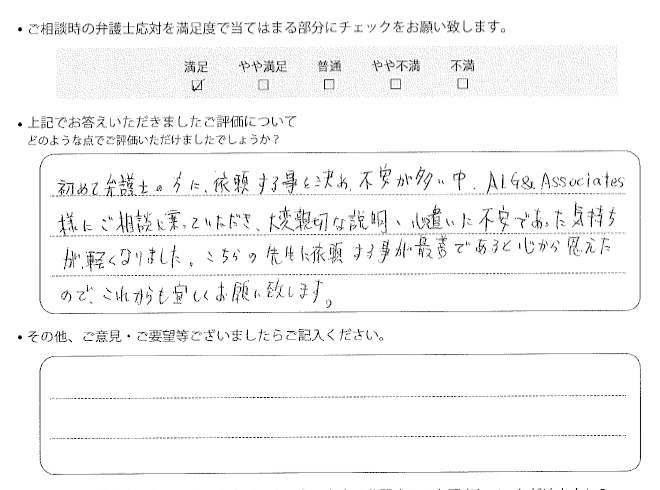 • ご相談時の弁護士応対を満足度で当てはまる部分にチェックをお願い致します。
満足 やや満足 普通 やや不満 不満
☑ □ □ □ □
• 上記でお答えいただきましたご評価について
どのような点でご評価いただけましたでしょうか?
初めて弁護士の方に、依頼する事を決め、不安が多い中、ALG&Associates
様にご相談に乗っていただき、大変親切な説明、心遣いに不安であった気持ち
が、軽くなりました。こちらの先生に依頼する事が最善であると心から思えた
ので、これからも宜しくお願い致します。
• その他、ご意見・ご要望等ございましたらご記入ください。